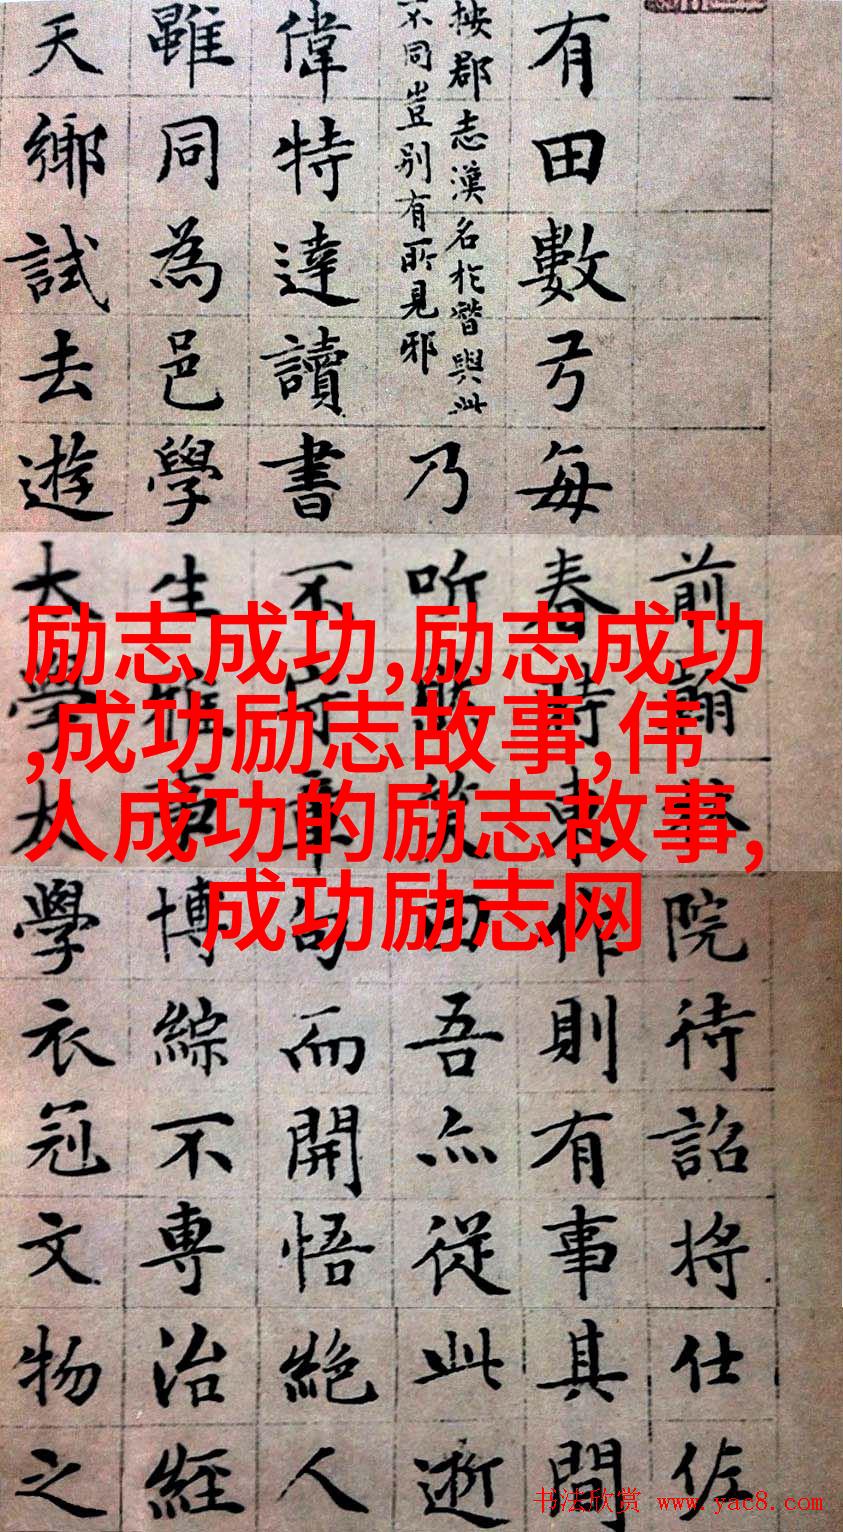 前翰院待詔將仕佐
有田數弓每春時東作則有事其間
按郡志漢名於與此
不同豈别有所見邪
乃听然笑曰吾亦從此逝
偉特達讀書不守章句而開悟絶人
雖同為邑學生雅博綜不專治經
天鄉試去遊太學太學衣冠文物之
励志成功,励志成功
,成功励志故事,伟
人成功的励志故事,
成功励志网
书法欣赏 www.yac8.com